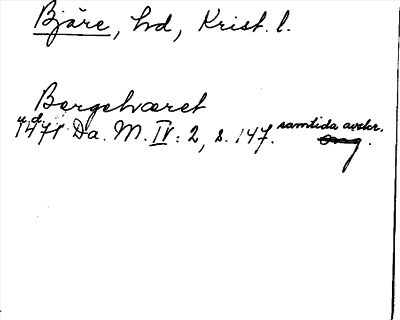 Bjäre, hd, Krist. l.
Bergehæret
1471 Da. M. IV: 2, s. 147. samtida avskr.